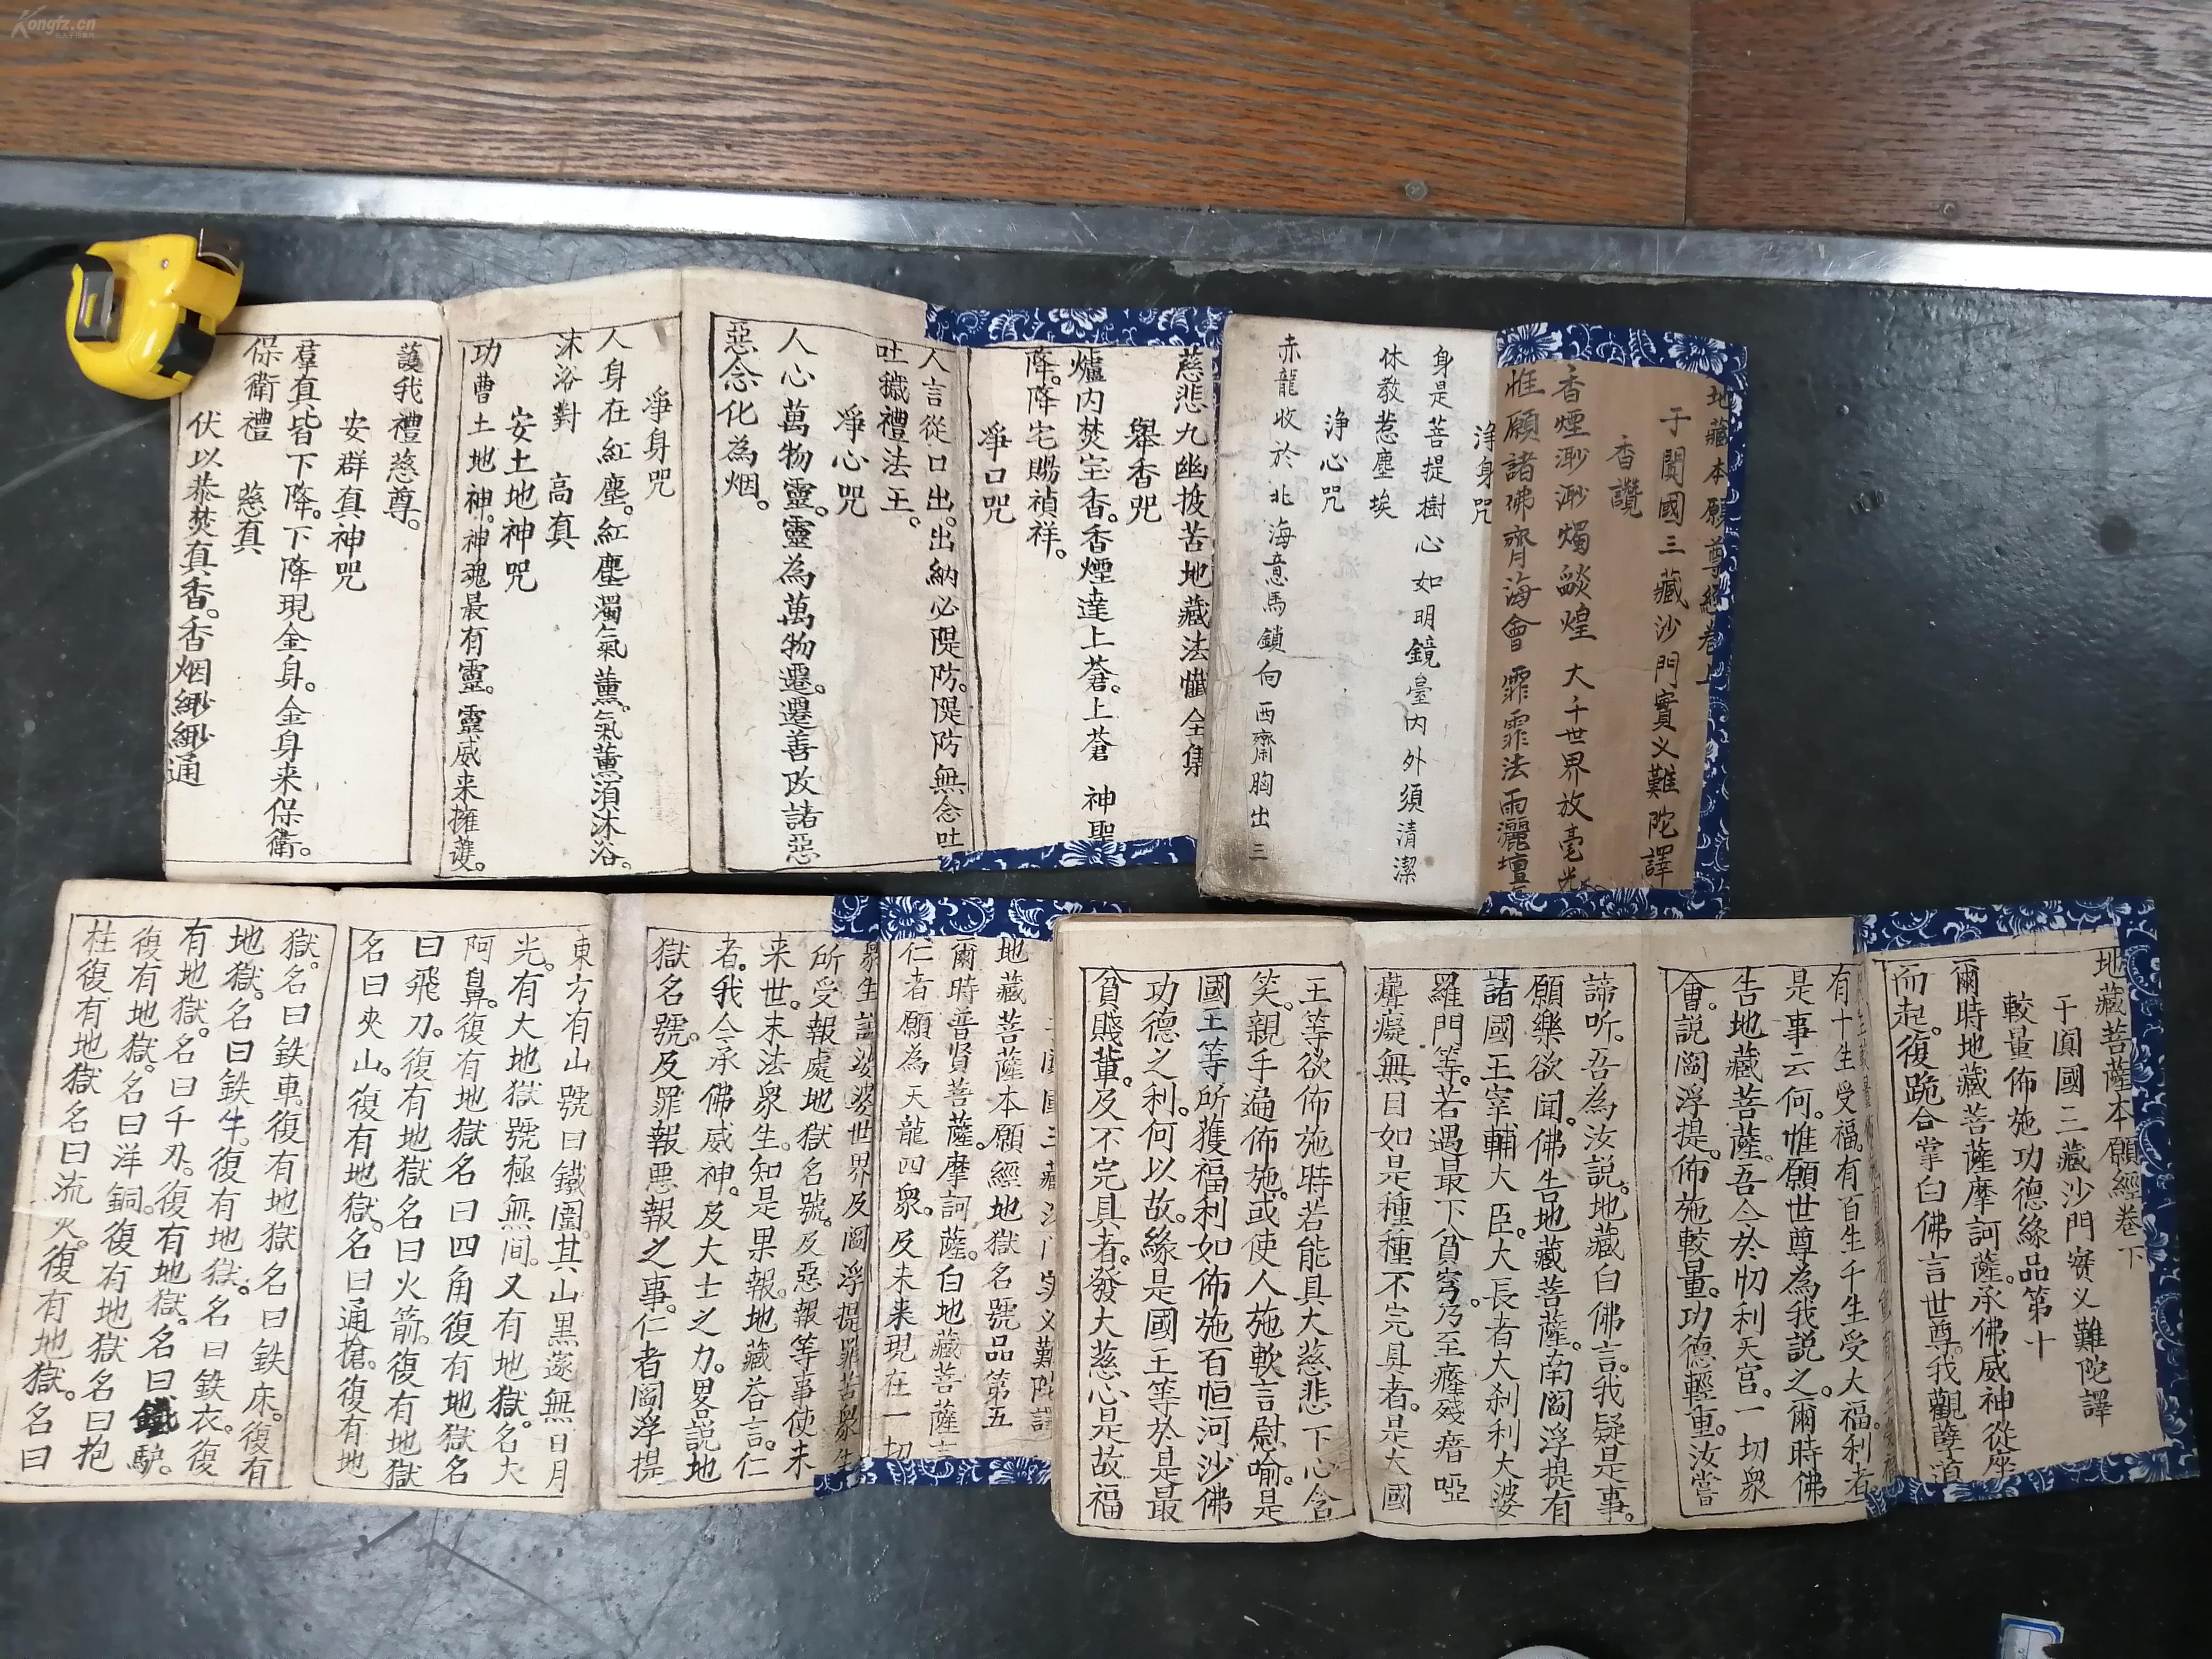 Kongfz.cn
地藏本願尊經卷上
于闐國三藏沙門實义難陀譯
香讚
香煙渺渺燭燄煌 大千世界放毫光
惟願諸佛齊海會 霏霏法雨灑壇
淨身咒
身是菩提樹心如明鏡臺內外須清潔
休教惹塵埃
淨心咒
赤龍收於北海意馬鎖向西齋胸出三
慈悲九幽拔苦地藏法懺全集
舉香咒
爐內焚宝香。香煙達上蒼。上蒼 神聖
降。降宅賜禎祥。
淨口咒
人言從口出。出納必隄防。隄防無念吐
吐穢禮法王。
淨心咒
人心萬物靈。靈為萬物遷。遷善改諸惡
惡念化為烟。
淨身咒
人身在紅塵。紅塵濁氣薰。氣薰須沐浴。
沐浴對 高真
安土地神咒
功曹土地神。神魂最有靈。靈威来擁護。
護我禮慈尊。
安群真神咒
羣真皆下降。下降現金身。金身来保衛。
保衛禮 慈真
伏以恭焚真香。香烟緲緲通
地藏菩薩本願經卷下
于闐國三藏沙門實义難陀譯
較量佈施功德緣品第十
爾時地藏菩薩摩訶薩。承佛威神。從座
而起。復跪合掌白佛言世尊。我觀孽道
有十生受福。有百生千生受大福利者
是事云何。惟願世尊為我説之。爾時佛
告地藏菩薩。吾今於忉利天宮。一切衆
會。説閻浮提。佈施較量。功德輕重。汝當
諦听。吾為汝説。地藏白佛言。我疑是事。
願樂欲闻。佛告地藏菩薩。南閻浮提有
諸國王宰輔大臣。大長者大刹利大婆
羅門等。若遇最下貧窮。乃至癃殘瘖啞
聾癡無目如是種種不完具者。是大國
王等欲佈施時若能具大慈悲下心含
笑。親手遍佈施。或使人施軟言慰喻。是
國王等所獲福利如佈施百恒河沙佛
功德之利。何以故。緣是國王等於是最
貧賤輩。及不完具者。發大慈心是故福
地藏菩薩本願經地獄名號品第五
爾時普賢菩薩。摩訶薩。白地藏菩薩言
仁者願為天龍四衆。及未来現在一切
衆生説娑婆世界及閻浮提罪苦衆生
所受報處地獄名號。及惡報等事使未
来世。末法衆生。知是果報。地藏荅言。仁
者。我今承佛威神。及大士之力。畧説地
獄名號。及罪報悪報之事。仁者閻浮提
東方有山號曰鐵圍。其山黑邃無日月
光。有大地獄號極無间。又有地獄。名大
阿鼻。復有地獄名曰四角復有地獄名
曰飛刀。復有地獄名曰火箭。復有地獄
名曰夾山。復有地獄。名曰通槍。復有地
獄。名曰鉄車。復有地獄名曰鉄床。復有
地獄。名曰鉄牛。復有地獄。名曰鉄衣。復
有地獄。名曰千刃。復有地獄。名曰鐵驢。
復有地獄。名曰洋銅。復有地獄名曰抱
柱復有地獄名曰流火。復有地獄。名曰